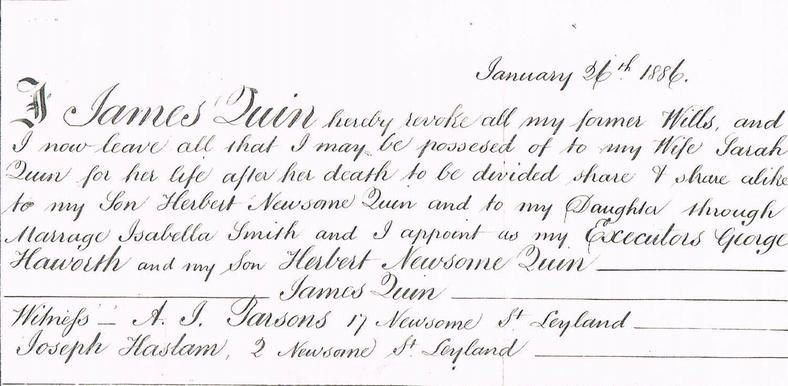 January 26th 1886.
I James Quin hereby revoke all my former Wills, and
I now leave all that I may be possesed of to my Wife Sarah
Quin for her life after her death to be divided share & share alike
to my Son Herbert Newsome Quin and to my Daughter through
Marrage Isabella Smith and I appoint as my Executors George
Haworth and my Son Herbert Newsome Quin
James Quin
Witness – A. J. Parsons 17 Newsome St Leyland
Joseph Haslam, 2 Newsome St Leyland